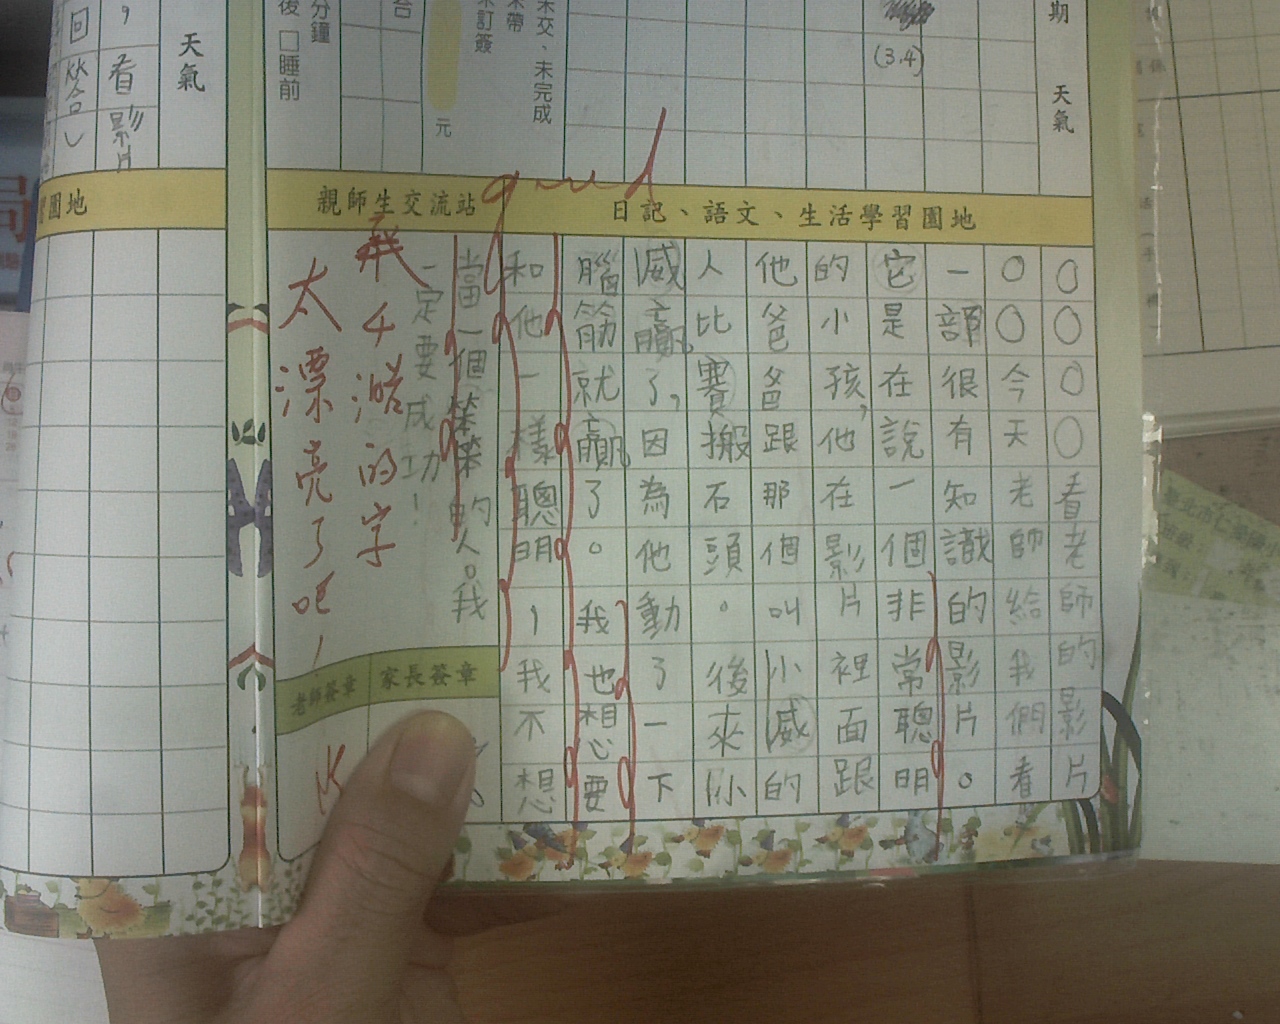 期 天氣
(3.4)
未交、未完成
元
分鐘
後 □睡前
日記、語文、生活學習園地
○○○○看老師的影片
○○今天老師給我們看
一 很有知識的影片。
它是在說一個非常聰明
的小孩,他在影片裡面跟
他爸爸跟那個叫小威的
人比賽搬石頭。後來小
威贏了,因為他動了一下
腦筋就贏了。我也想要
和他一樣聰明,我不想
當一個笨笨的人。我
一定要成功!
good
親師生交流站
的字
太漂亮了吧!
家長簽章
老師簽章
天氣
,看影片
回答
園地